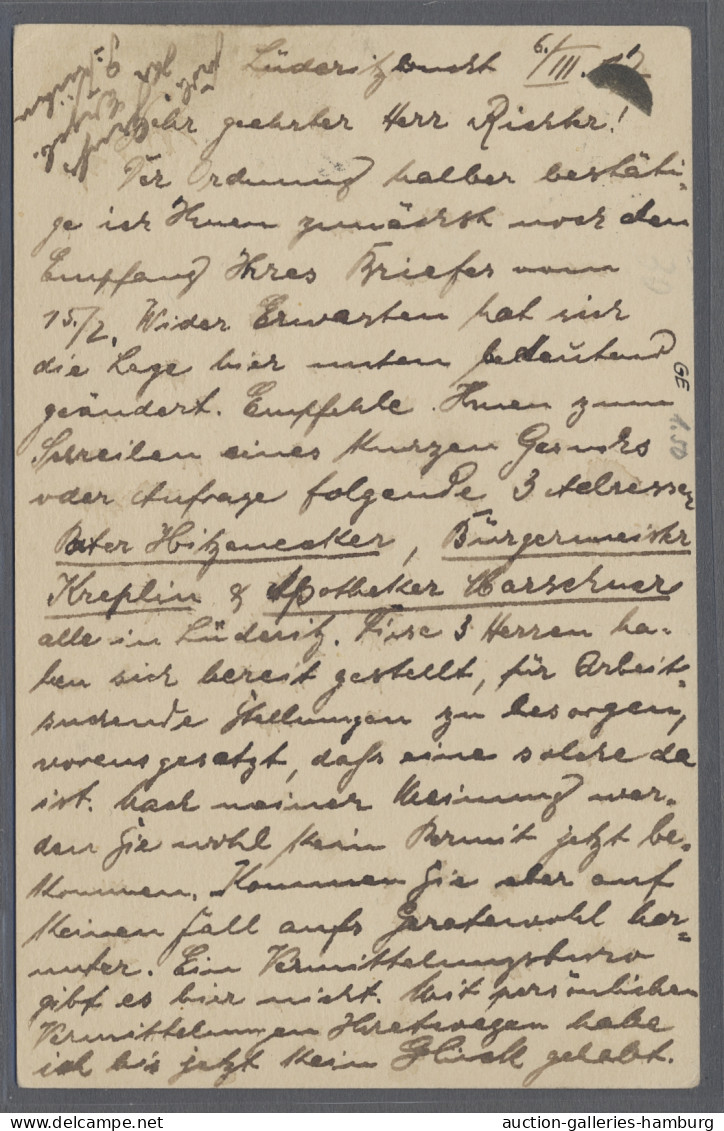 Lüderitzbucht 6./III.
Sehr geehrter Herr Richter!
Der Ordnung halber bestäti-
ge ich Ihnen zunächst noch den
Empfang Ihres Briefes vom
15./2. Wider Erwarten hat sich
die Lage hier unten bedeutend
geändert. Empfehle Ihnen zum
Schreiben eines kurzen Gesuchs
oder Anfrage folgende 3 Adressen
Pater Hitzenecker, Bürgermeister
Kreplin & Apotheker
alle in Lüderitz. Diese 3 Herren ha-
ben sich bereit gestellt, für Arbeit-
suchende Stellungen zu besorgen,
vorausgesetzt, daß eine solche da
ist. Nach meiner Meinung wer-
den Sie wohl kein Permit jetzt be-
kommen. Kommen Sie aber auf
keinen Fall aufs Geratewohl her-
unter. Ein Vermittelungsbüro
gibt es hier nicht. Mit persönlichen
Vermittelungen Ihretwegen habe
ich bis jetzt kein Glück gehabt.
GE
1.50
auction-galleries-hamburg